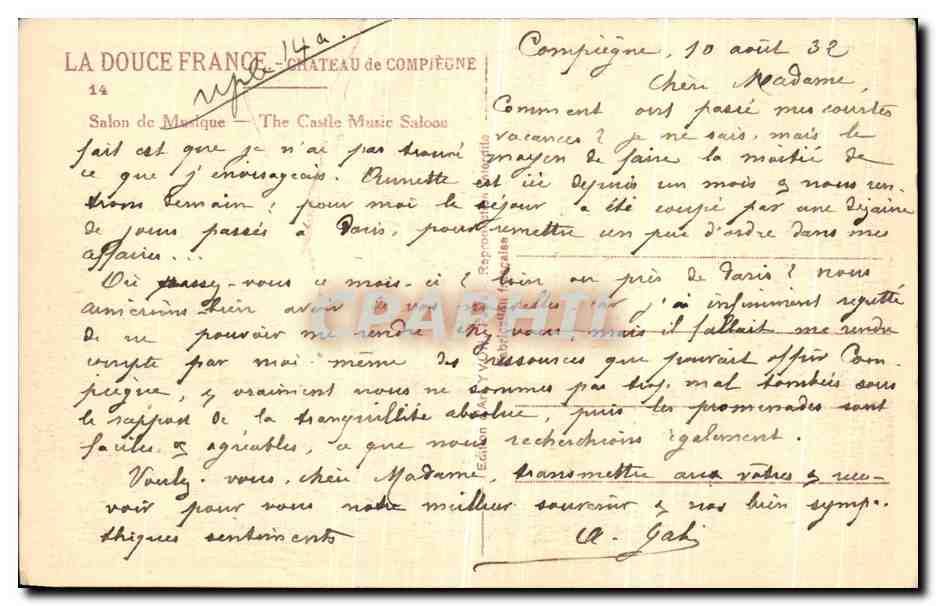 LA DOUCE FRANCE. - CHATEAU de COMPIÈGNE
14
Salon de Musique — The Castle Music Saloon
Compiègne, 10 août 32
Chère Madame,
Comment ont passé mes courtes
vacances ? je ne sais, mais le
fait est que je n'ai pas trouvé moyen de faire la moitié de
ce que j'envisageais. est ici depuis un mois & nous ren-
trons demain ; pour moi le séjour a été coupé par une dizaine
de jours passés à Paris, pour remettre un peu d'ordre dans mes
affaires...
Où passez-vous ce mois-ci ? loin ou près de Paris ? nous
aimerions bien avoir de vos nouvelles car j'ai infiniment regretté
de ne pouvoir me rendre chez vous, mais il fallait me rendre
compte par moi-même des ressources que pouvait offrir Com
piègne, & vraiment nous ne sommes pas trop mal tombés sous
le rapport de la tranquillité absolue, puis les promenades sont
faciles & agréables, ce que nous recherchions également.
Veuillez-vous, chère Madame, transmettre aux vôtres & rece-
voir pour vous notre meilleur souvenir & nos bien symp.
thiques sentiments
Edition d'Art YVON Reproduction interdite
Fabrication française
CPAPHIL